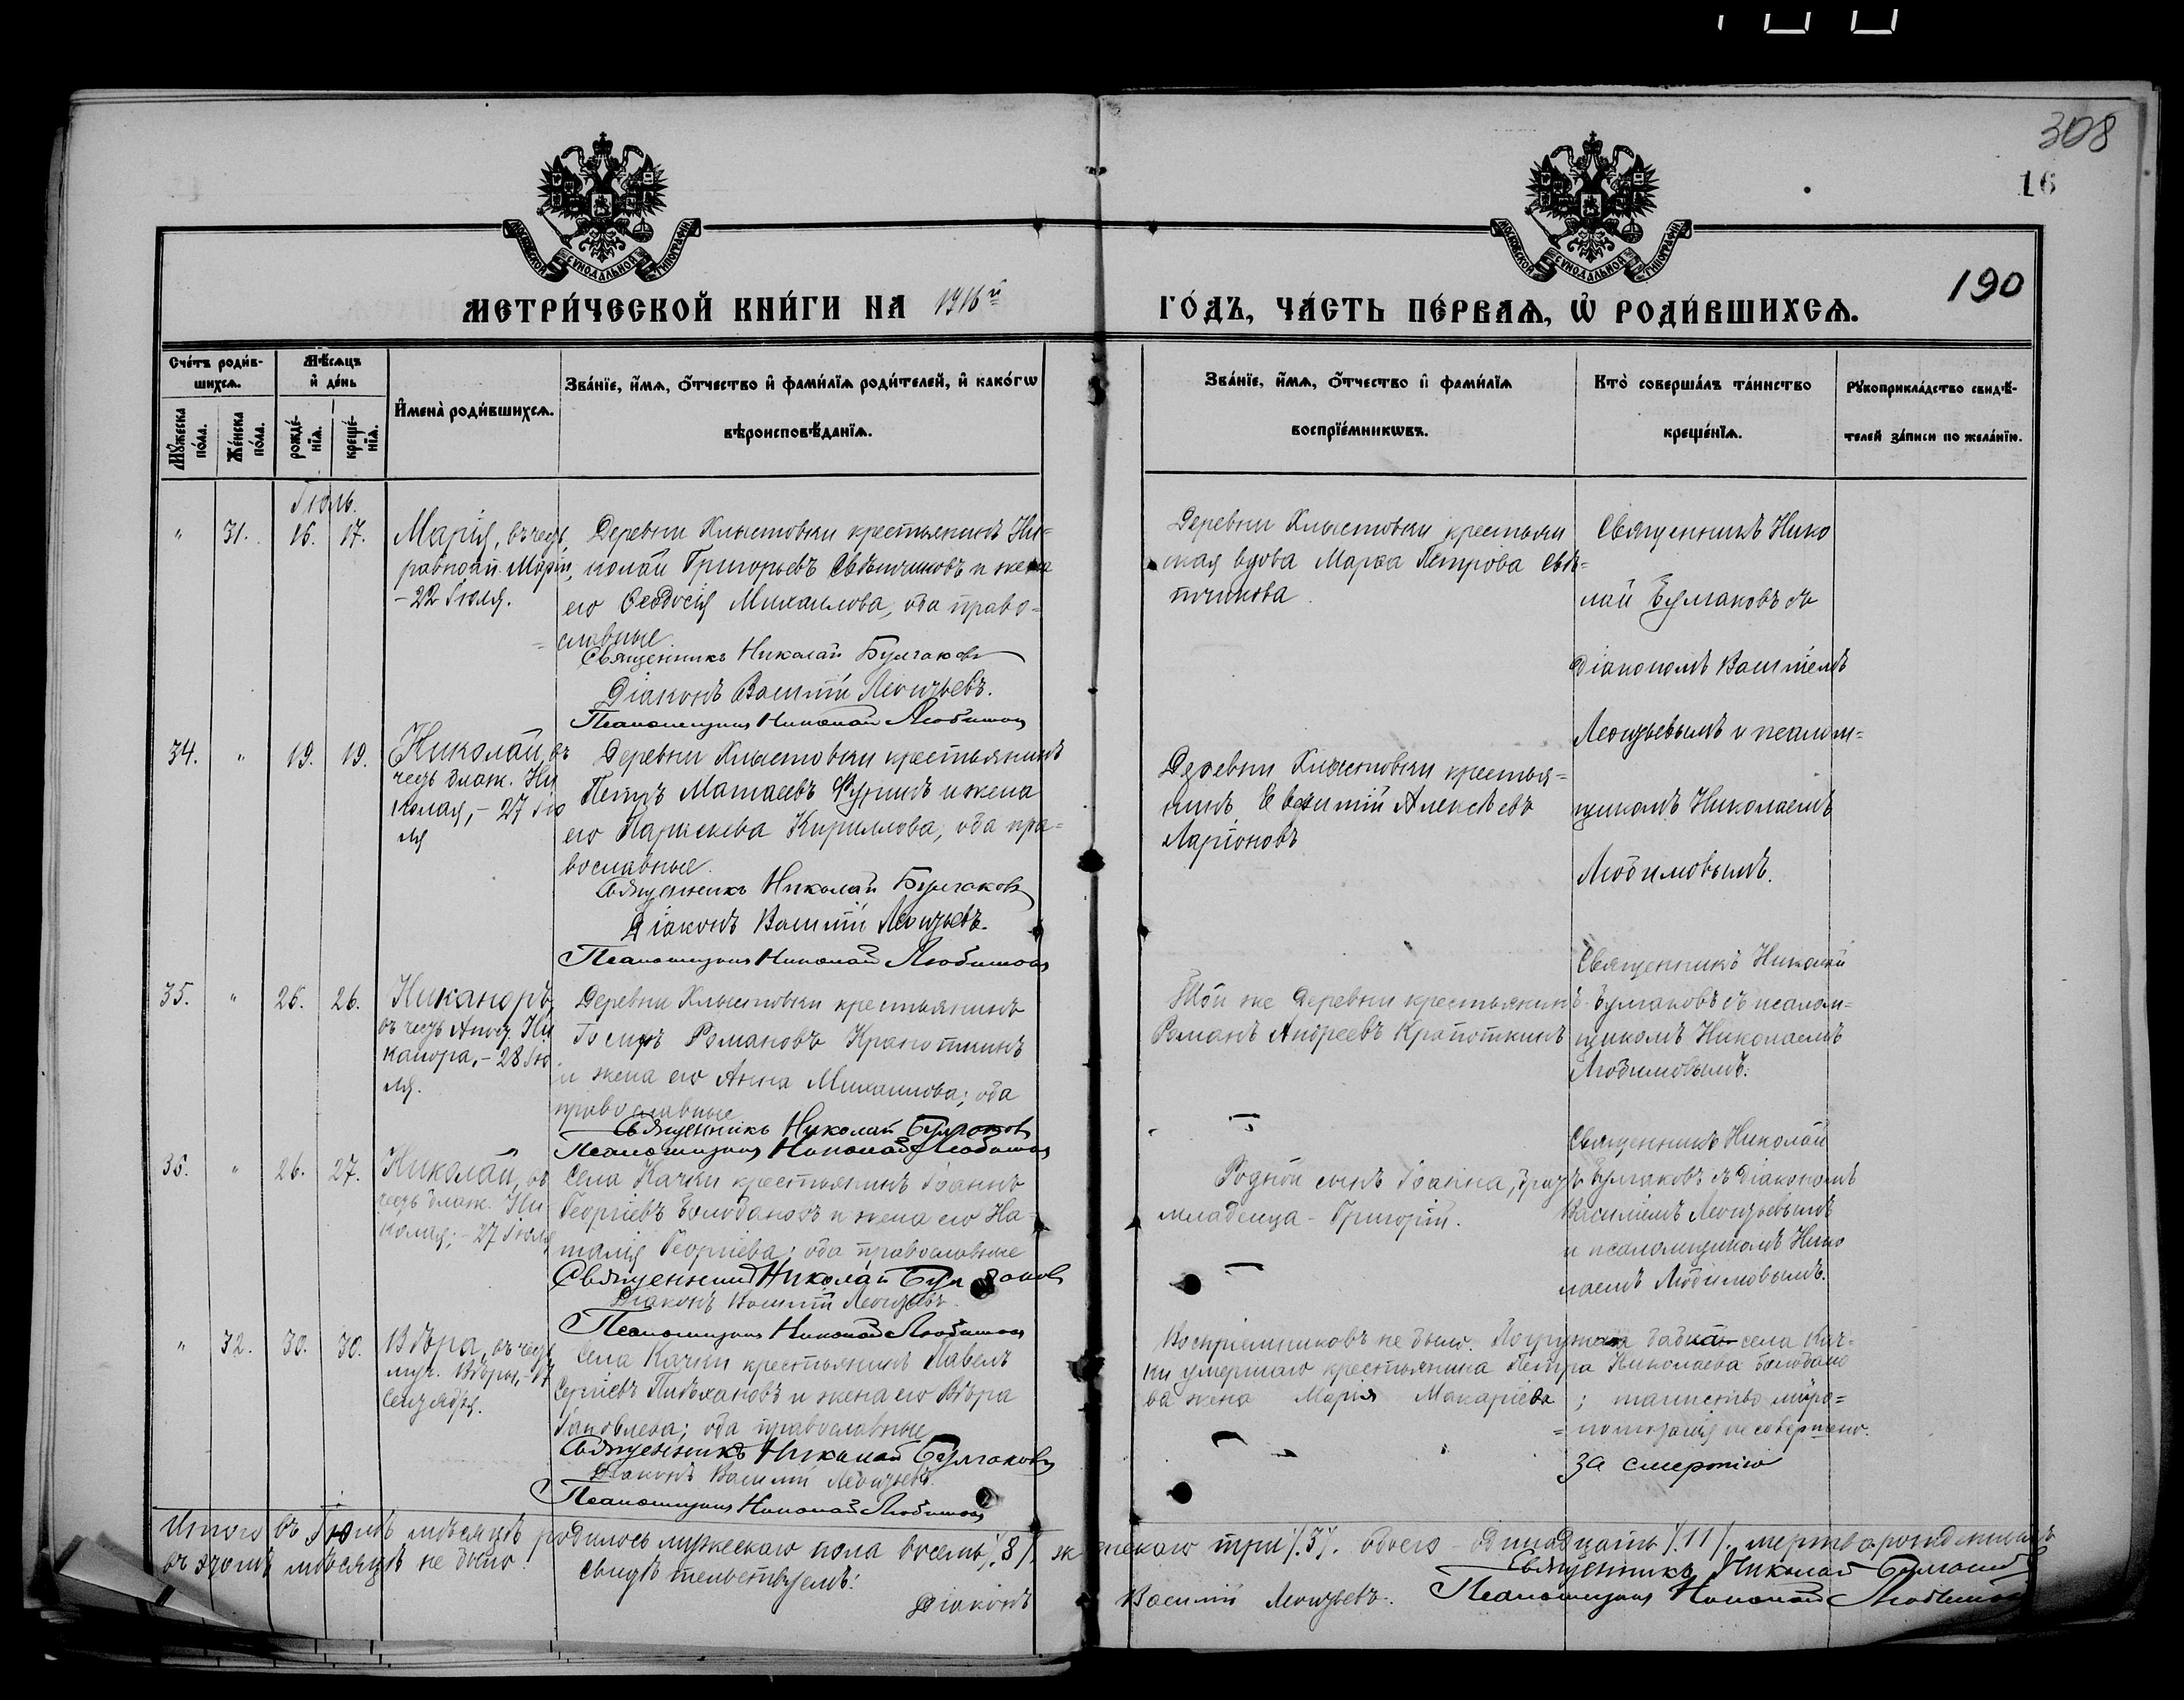 308
16
190
МОСКОВСКОЙ СѴНОДАЛЬНОЙ ТИПОГРАФІИ
МОСКОВСКОЙ СѴНОДАЛЬНОЙ ТИПОГРАФІИ
МЕТРИ́ЧЕСКОЙ КНИ́ГИ НА 1916й ГО́ДЪ, ЧА́СТЬ ПЕ́РВАѦ, Ѡ҆ РОДИ́ВШИХСѦ.
Сче́тъ роди́в-
шихсѧ.
Мѣ́сѧцъ
и҆ де́нь
Мꙋ́жеска по́ла.
Же́нска по́ла.
рожде́-
нїѧ.
креще́-
нїѧ.
И҆мена̀ роди́вшихсѧ.
Зва́нїе, и҆́мѧ, ѻ҆́тчество и҆ фами́лїѧ роди́телей, и҆ како́гѡ
вѣроисповѣ́данїѧ.
Зва́нїе, и҆́мѧ, ѻ҆́тчество и҆ фами́лїѧ
воспрїе́мникѡвъ.
Кто̀ соверша́лъ та́инство
креще́нїѧ.
Рꙋкоприкла́дство свидѣ́-
телей за́писи по жела́нїю.
Іюль.
" 31. 16. 17.
Марія, въ честь
равноап. Маріи,
- 22 Іюля.
Деревни Хлыстовки крестьянинъ Ни-
колай Григорьевъ Свѣтчиковъ и жена
его Ѳеодосія Михаилова, оба право-
славные.
Священникъ Николай Булгаковъ
Діаконъ Василій Леонтьевъ.
Псаломщикъ Николай Любимовъ
Деревни Хлыстовки крестьян
ская вдова Марѳа Петрова Свѣ-
тчикова.
Священникъ Нико
лай Булгаковъ съ
Діакономъ Василіемъ
Леонтьевымъ и псалом-
щикомъ Николаемъ
Любимовымъ.
34. " 19. 19.
Николай, въ
честь блаж. Ни
колая, - 27 Ію
ля
Деревни Хлыстовки крестьянинъ
Петръ Матѳеевъ и жена
его Параскева Кириллова, оба пра-
вославные.
Священникъ Николай Булгаковъ
Діаконъ Василій Леонтьевъ.
Псаломщикъ Николай Любимовъ
Деревни Хлыстовки крестья-
нинъ Евѳимій Алексѣевъ
Ларіоновъ
35. " 26. 26.
Никаноръ,
въ честь Апос. Ни
канора, - 28 Ію
ля.
Деревни Хлыстовки крестьянинъ
Іосифъ Романовъ Крапоткинъ
и жена его Анна Михаилова; оба
православные
Священникъ Николай Булгаковъ
Псаломщикъ Николай Любимовъ
Той же деревни крестьянинъ
Романъ Андреевъ Крапоткинъ
Священникъ Николай
Булгаковъ съ псалом-
щикомъ Николаемъ
Любимовымъ.
36. " 26. 27.
Николай, въ
честь блаж. Ни
колая; - 27 Іюля
Села Качки крестьянинъ Іоаннъ
Георгіевъ Болобановъ и жена его На-
талія Георгіева; оба православные
Священникъ Николай Булгаковъ
Діаконъ Василій Леонтьевъ.
Псаломщикъ Николай Любимовъ
Родной сынъ Іоанна, братъ
младенца - Григорій.
Священникъ Николай
Булгаковъ съ Діакономъ
Василіемъ Леонтьевымъ
и псаломщикомъ Нико
лаемъ Любимовымъ.
" 32. 30. 30.
Вѣра, въ честь
муч. Вѣры, - 17
Сентября.
Села Качки крестьянинъ Павелъ
Сергіевъ и жена его Вѣра
Іаковлева; оба православные
Священникъ Николай Булгаковъ
Діаконъ Василій Леонтьевъ.
Псаломщикъ Николай Любимовъ
Воспріемниковъ не было. Погружена бабкою села Кач-
ки умершаго крестьянина Петра Николаева Болобано
ва жена Марія Макаріева; таинство мѵро-
помазанія не совершено.
за смертію
Итого въ Іюлѣ мѣсяцѣ родилось мужескаго пола восемь /.8/. женскаго три /.3/. обоего - одинадцать /.11/. мертворожденныхъ
въ этомъ мѣсяцѣ не было. Свидѣтельствуемъ: Священникъ Николай Булгаковъ
Діаконъ Василій Леонтьевъ. Псаломщикъ Николай Любимовъ